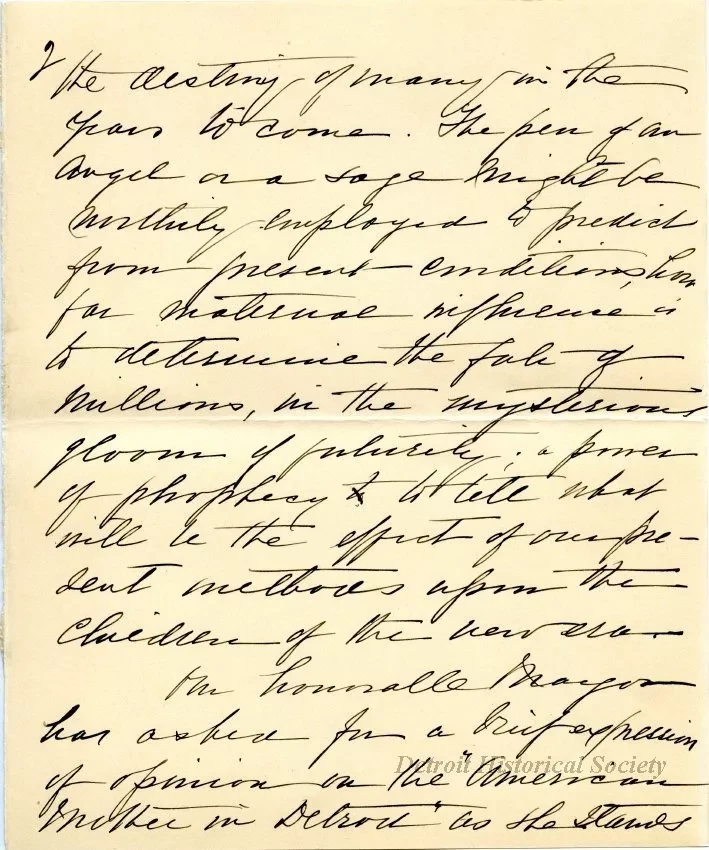 2
the destiny of many in the
years to come. The pen of an
Angel or a sage might be
worthily employed to predict
from present conditions, how
far maternal influence is
to determine the fate of
millions, in the mysterious
gloom of futurity; a power
of prophecy to tell what
will be the effect of our pre-
sent methods upon the
children of the new era.
Our honorable Mayor
has asked for a brief expression
of opinion on the "American
Mother in Detroit" as she stands
Detroit Historical Society